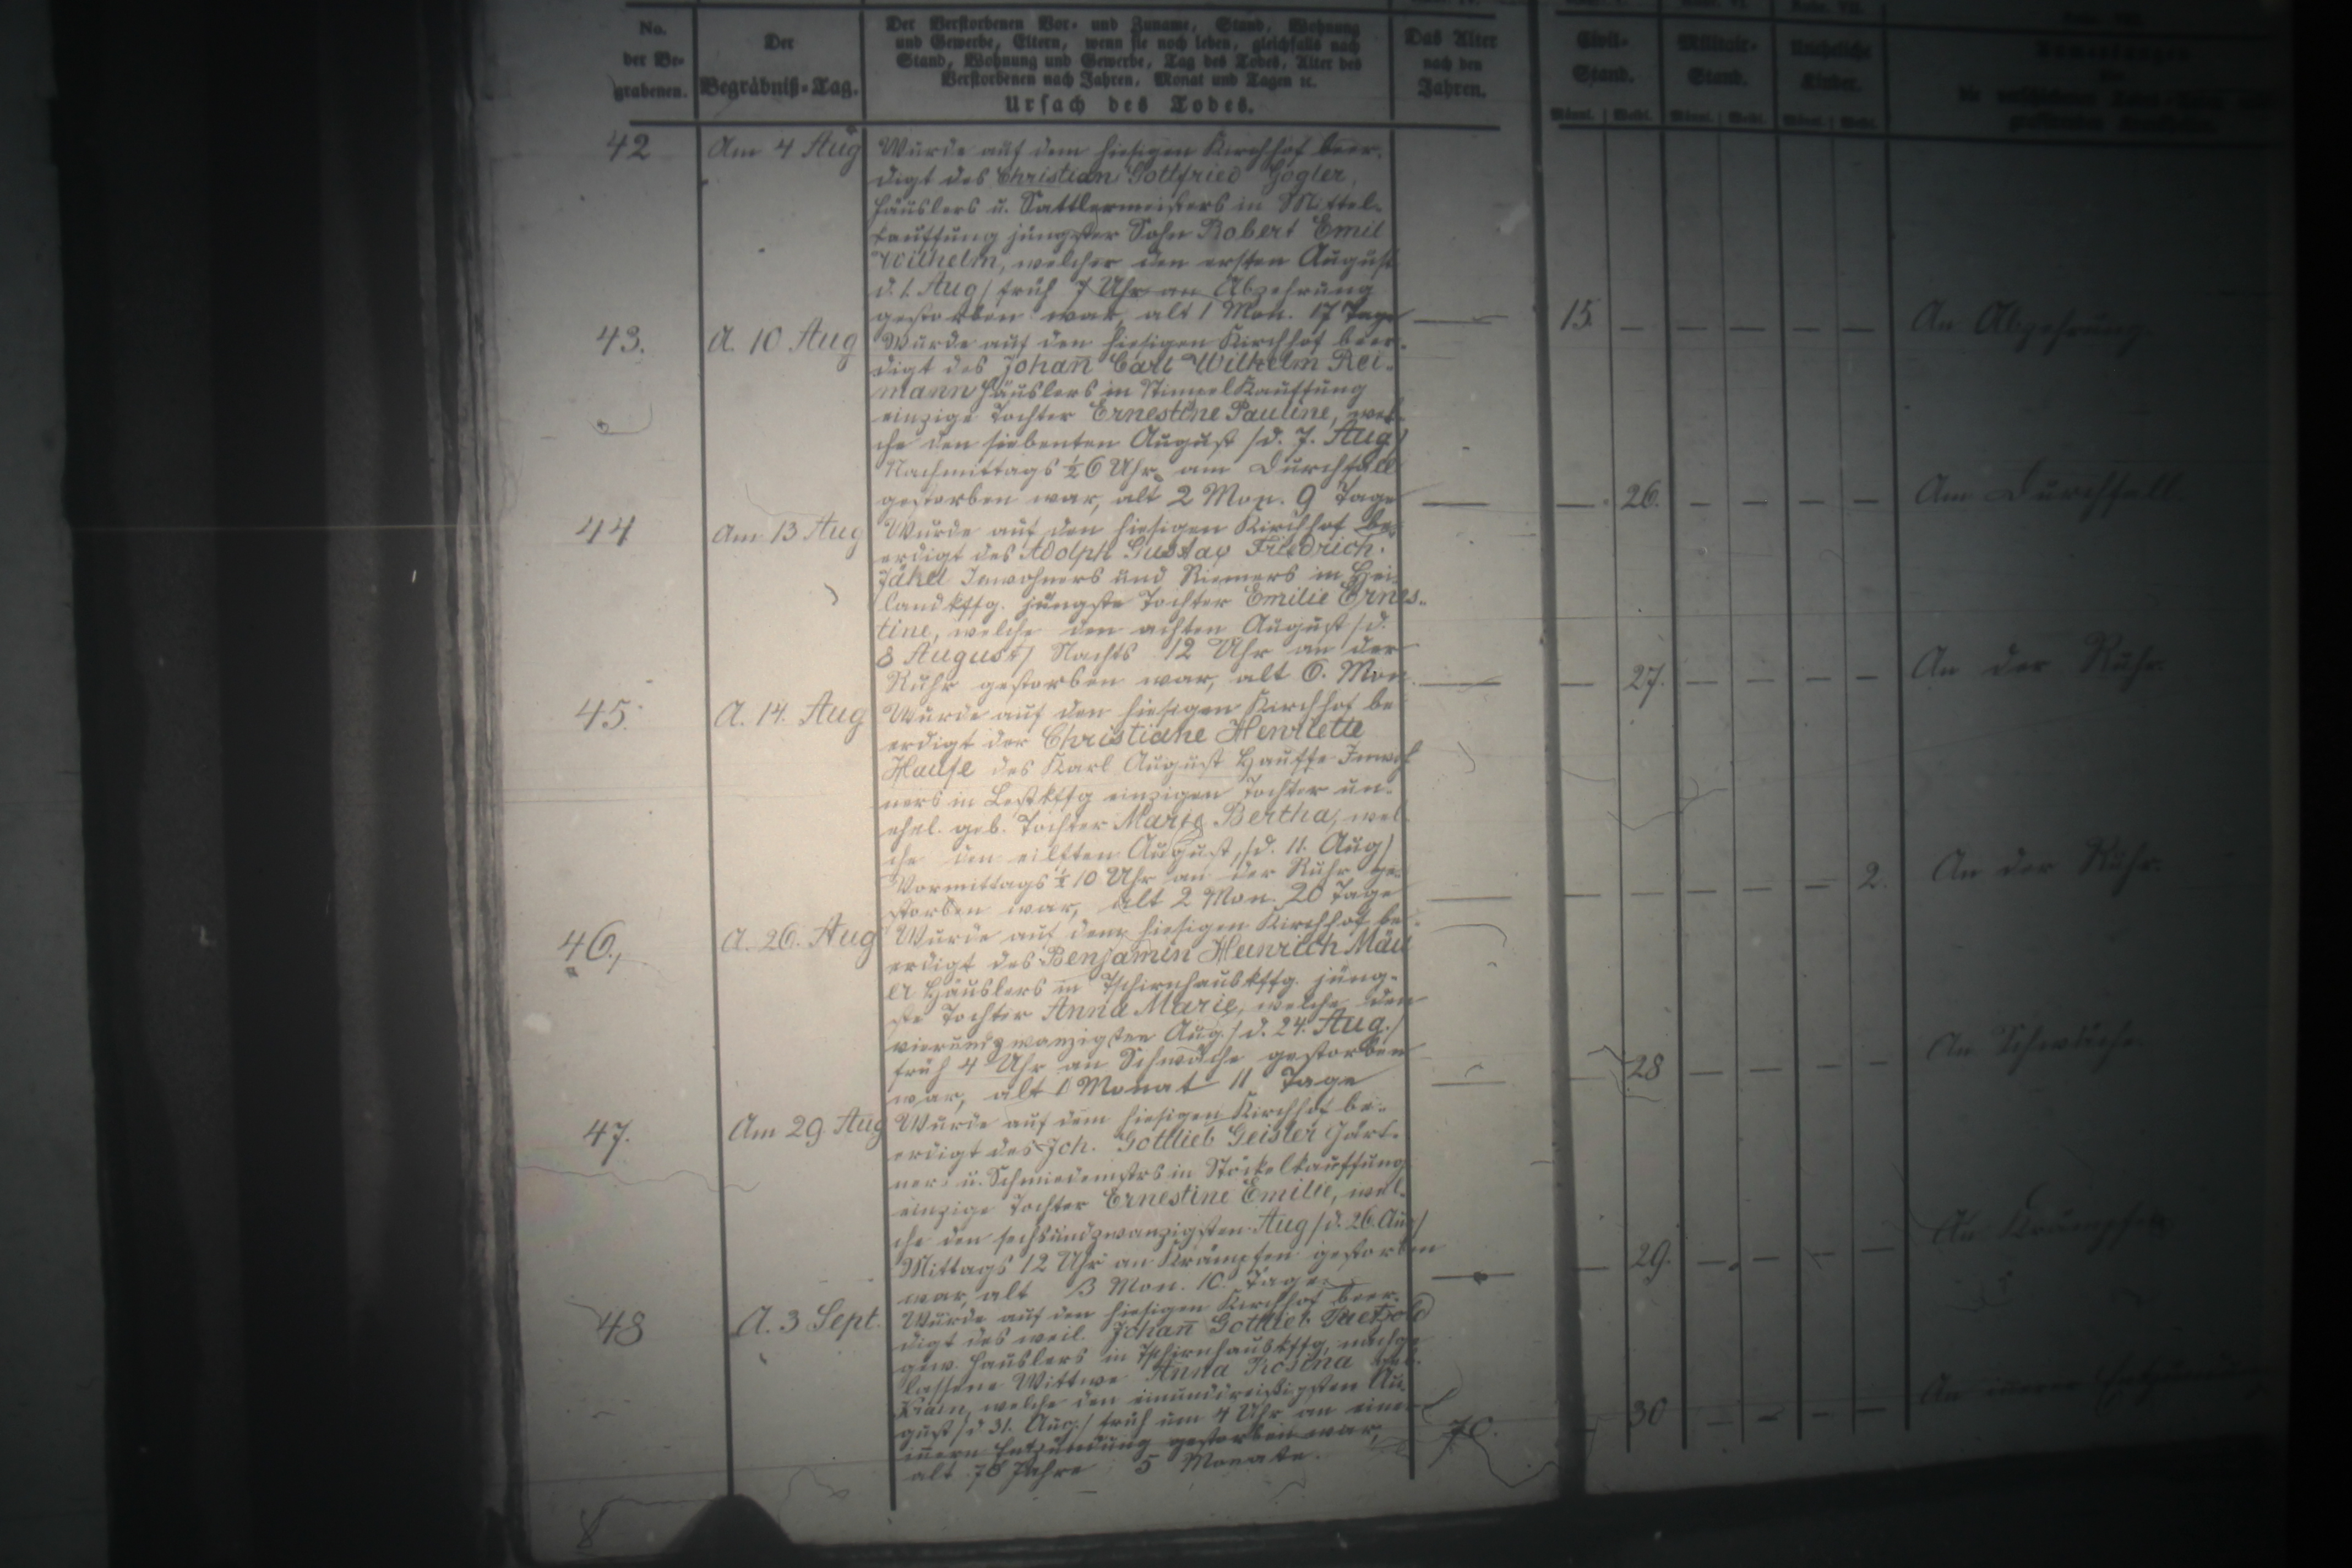 No.
der Be-
grabenen.
Der
Begräbniß-Tag.
Der Verstorbenen Vor- und Zuname, Stand, Wohnung
und Gewerbe, Eltern, wenn sie noch leben, gleichfalls nach
Stand, Wohnung und Gewerbe, Tag des Todes, Alter des
Verstorbenen nach Jahren, Monat und Tagen ꝛc.
Ursach des Todes.
Das Alter
nach den
Jahren.
Civil-
Stand.
Männl. Weibl.
Militair-
Stand.
Männl. Weibl.
Uneheliche
Kinder.
Männl. Weibl.
42 Am 4 Aug Wurde auf dem hiesigen Kirchhof beer-
digt des Christian Gottfried Gögler,
Häuslers u. Sattlermeisters in Mittel-
kauffung jüngster Sohn Robert Emil
Wilhelm, welcher den ersten August
d. 1. Aug/ früh 7 Uhr an Abzehrung
gestorben war, alt 1 Mon. 17 Tage — 15. — — — — — An Abzehrung.
43. A. 10 Aug Wurde auf den hiesigen Kirchhof beer-
digt des Johan̄ Carl Wilhelm Rei-
mann Häuslers in Stimpel Kauffung
einzige Tochter Ernestine Pauline, wel-
che den siebenten August /d. 7. Aug/
Nachmittags ½ 6 Uhr am Durchfall
gestorben war, alt 2 Mon. 9 Tage — — 26. — — — — Am Durchfall
44 Am 13 Aug Wurde auf den hiesigen Kirchhof be-
erdigt des Adolph Gustav Friedrich
Jäkel Inwohners und Riemers in Hei-
landkffg. jüngste Tochter Emilie Ernes-
tine, welche den achten August /d.
8 August/ Nachts 12 Uhr an der
Ruhr gestorben war, alt 6. Mon. — — 27. — — — — An der Ruhr.
45. A. 14. Aug Wurde auf den hiesigen Kirchhof be
erdigt der Christiane Henriette
Haufe des Karl August Hauffe Inwoh
ners in Lestkffg einzigen Tochter un-
ehel. geb. Tochter Marie Bertha, wel-
che den eilften August, /d. 11. Aug/
Vormittags ½ 10 Uhr an der Ruhr ge-
storben war, alt 2 Mon. 20 Tage — — — — — — 2. An der Ruhr.
46., A. 26. Aug Wurde auf dem hiesigen Kirchhof be-
erdigt des Benjamin Heinrich
Häuslers in Tschirnhauskffg. jüng-
ste Tochter Anna Marie, welche den
vierundzwanzigsten Aug. /d. 24. Aug./
früh 4 Uhr an Schwäche gestorben
war, alt 1 Monat 11 Tage — — 28 — — — — An Schwäche
47. Am 29 Aug Wurde auf dem hiesigen Kirchhof be-
erdigt des Joh. Gottlieb Geisler Gärt-
ners u. Schmiedemstrs in Stöckelkauffung
einzige Tochter Ernestine Emilie, wel-
che den sechsundzwanzigsten Aug /d. 26. Aug/
Mittags 12 Uhr an Krämpfen gestorben
war, alt 3 Mon. 10. Tage. — — 29. — — — — An Krämpfen
48 A. 3 Sept. Wurde auf den hiesigen Kirchhof beer-
digt des weil. Johan̄ Gottlieb Paetzold
gew. Häuslers in Tschirnhauskffg, nachge
lassene Wittwe Anna Rosina geb.
welche den einunddreißigsten Au-
gust /d 31. Aug./ früh um 4 Uhr an einer
in̄ern Entzündung gestorben war,
alt 70 Jahre 5 Monate. 70. — 30 — — — — An innerer Entzündung